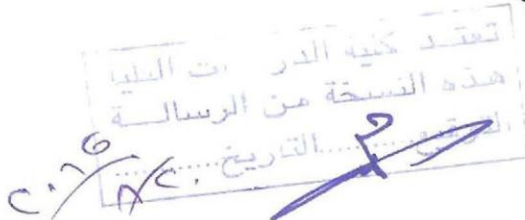 تعتمد كلية الدراسات العليا
هذه النسخة من الرسالة
التوقيع.............التاريخ.............